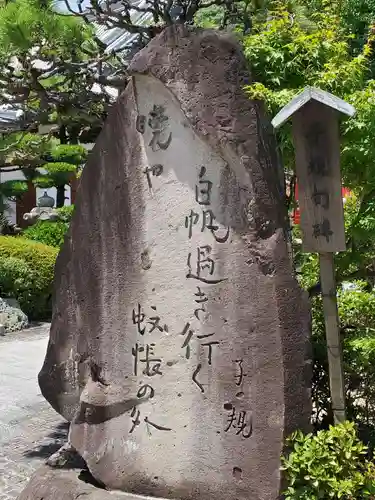 暁や
白帆過ぎ行く
蚊帳の外
子規
子規句碑